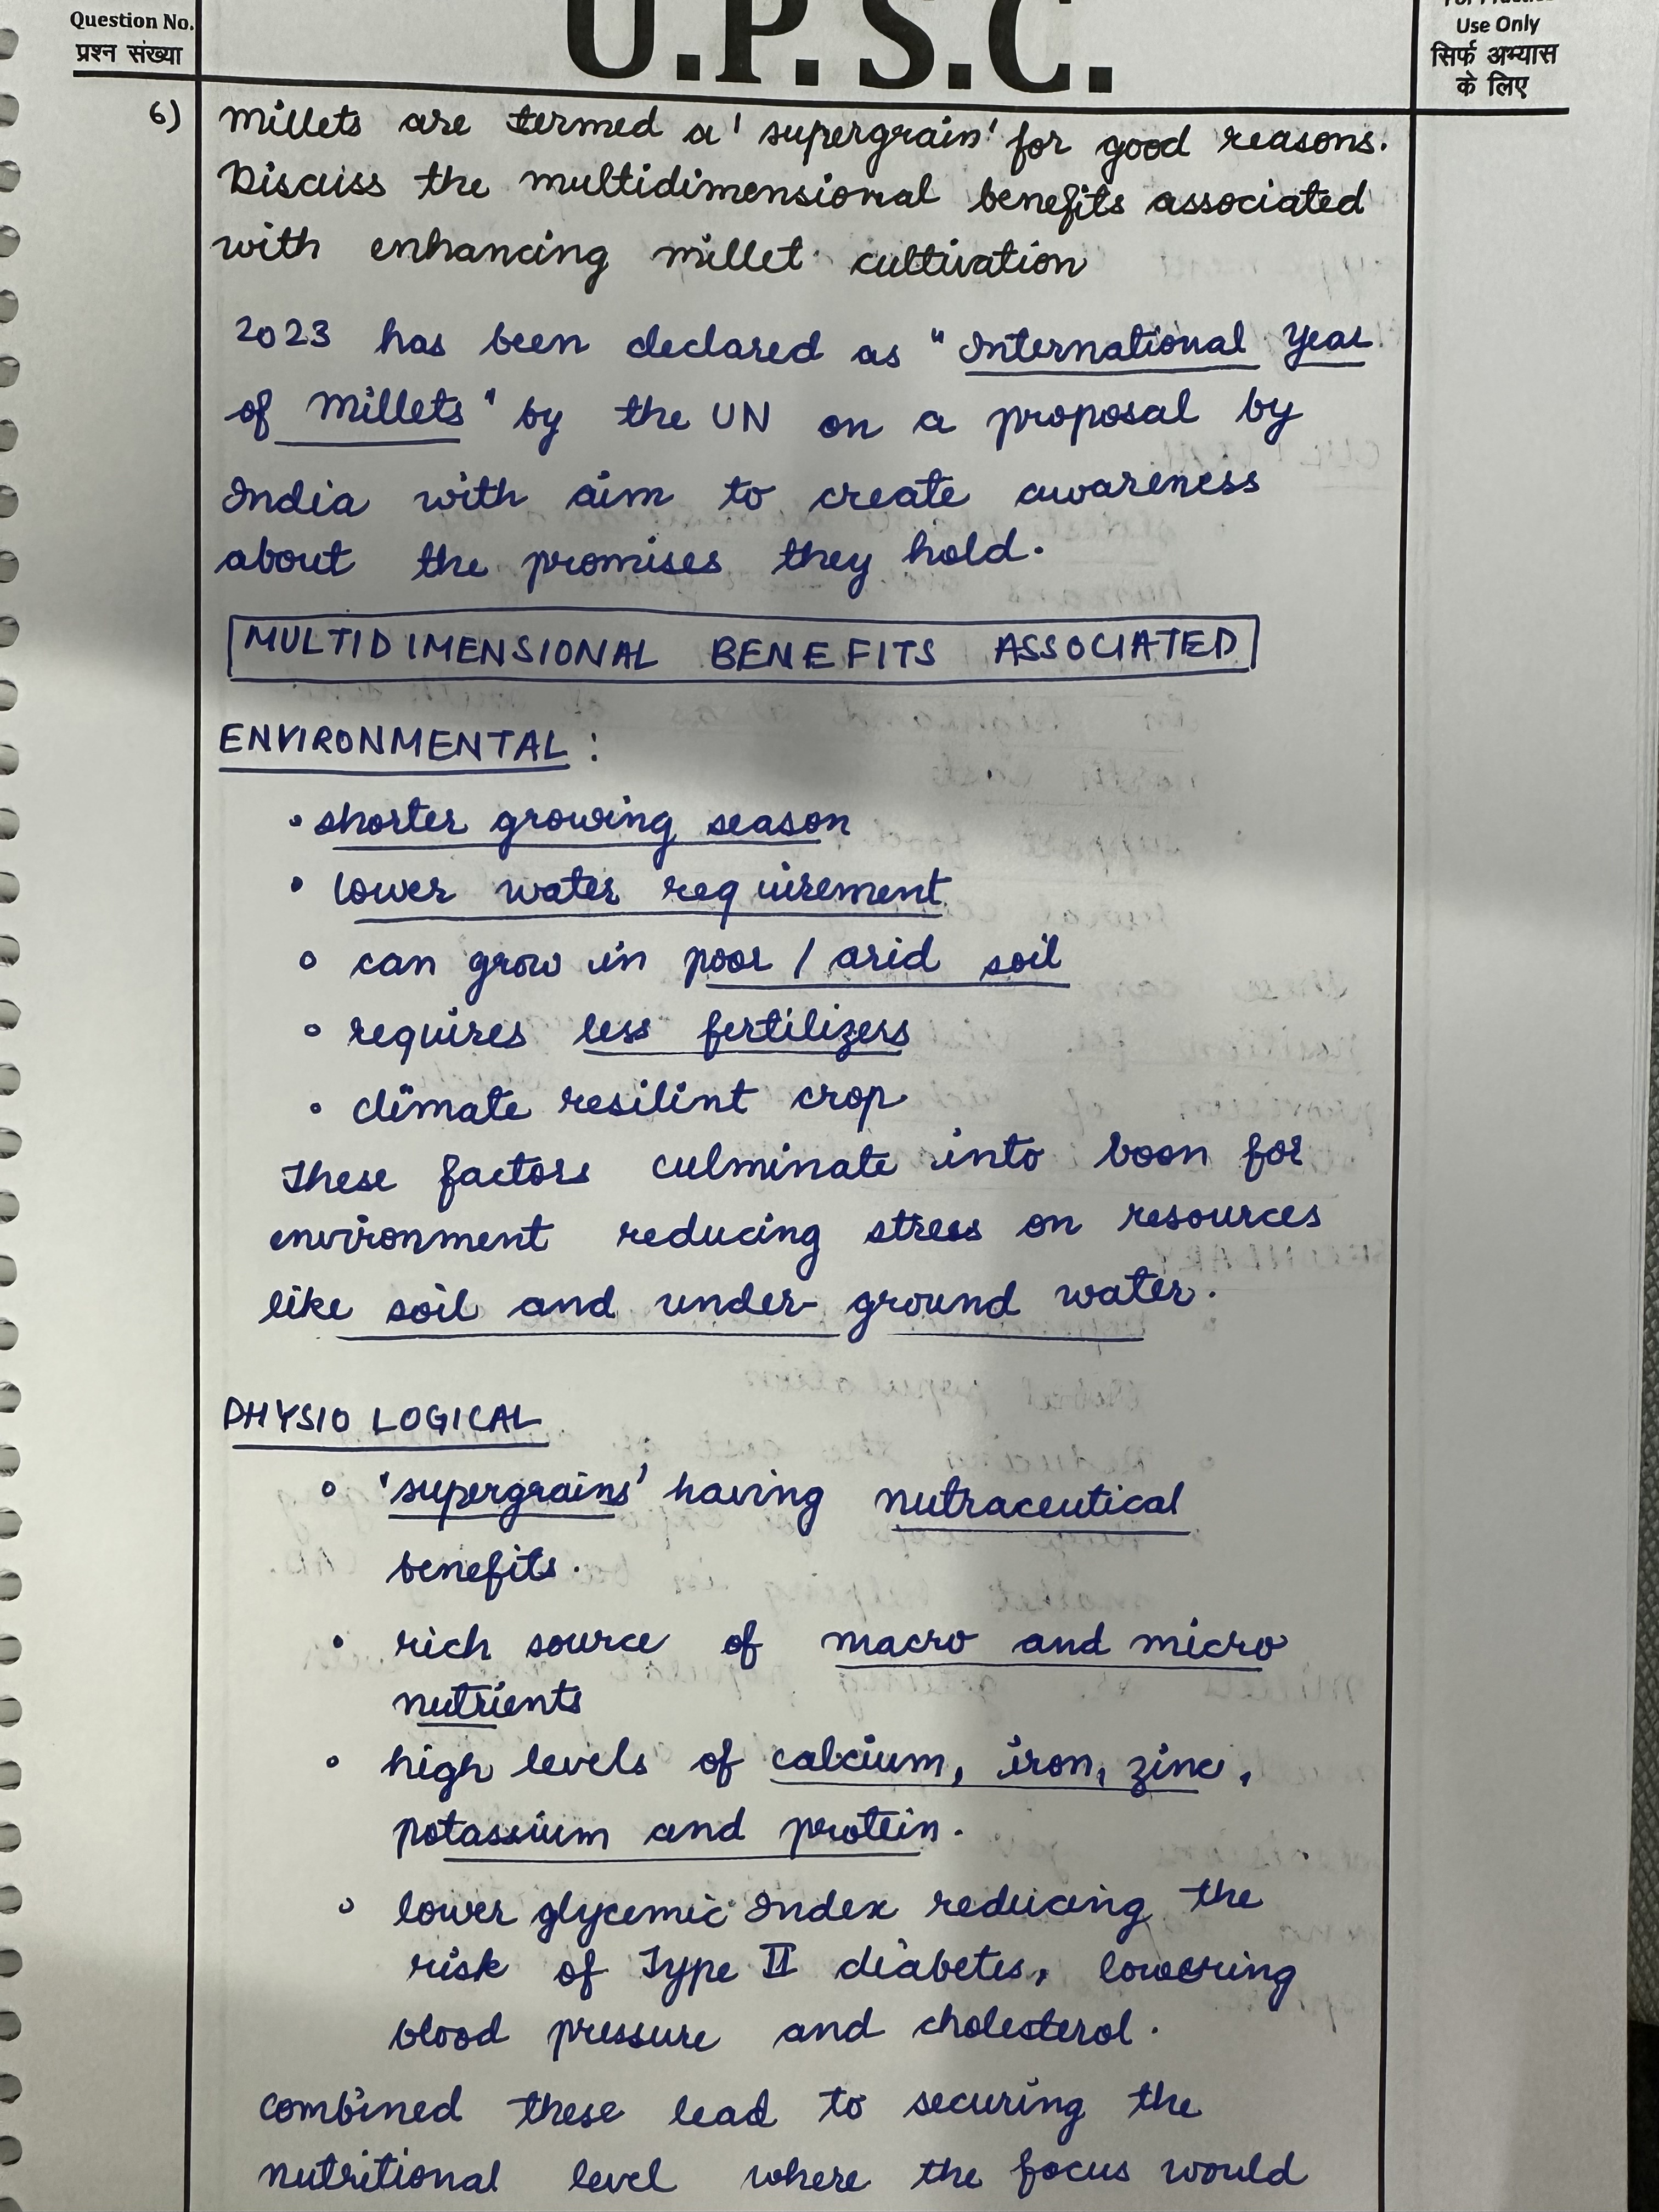 Question No.
प्रश्न संख्या
U.P.S.C.
Use Only
सिर्फ अभ्यास
के लिए
6) Millets are termed a 'supergrain' for good reasons.
Discuss the multidimensional benefits associated
with enhancing millet cultivation
2023 has been declared as "International Year
of Millets" by the UN on a proposal by
India with aim to create awareness
about the promises they hold.
MULTIDIMENSIONAL BENEFITS ASSOCIATED
ENVIRONMENTAL :
• shorter growing season
• lower water requirement
• can grow in poor / arid soil
• requires less fertilizers
• climate resilint crop
These factors culminate into boon for
environment reducing stress on resources
like soil and under-ground water.
PHYSIOLOGICAL
• 'supergrains' having nutraceutical
benefits.
• rich source of macro and micro
nutrients
• high levels of calcium, iron, zinc,
potassium and protein.
• lower glycemic Index reducing the
risk of Type II diabetes, lowering
blood pressure and cholesterol.
combined these lead to securing the
nutritional level where the focus would